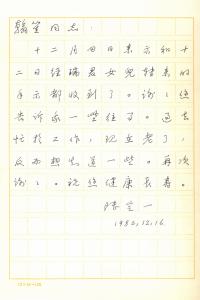 同志：
十二月四日来示和十
二日经瑞君女儿转来的
手示都收到了。谢谢您
告诉我一些往事。过去
忙于工作，现在老了，
反而想知道一些。再次
谢谢。祝您健康长寿。
陆兰一
1982.12.16